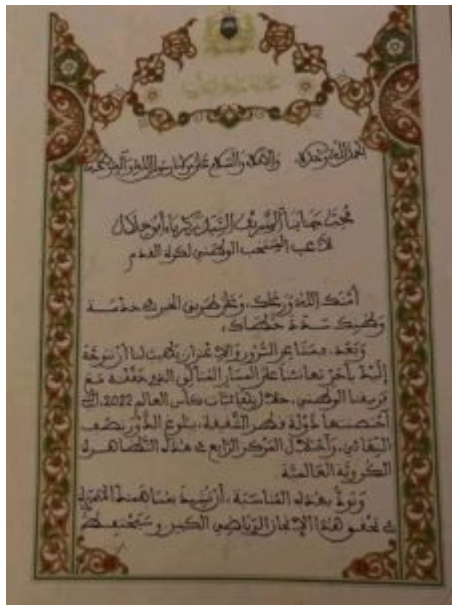 الحمد لله وحده، والصلاة والسلام على مولانا رسول الله وآله وصحبه
محبنا جنابنا الشريف السيد زكرياء أبو خلال
لاعب المنتخب الوطني لكرة القدم
أمنك الله ورعاك، وعلى طريق الخير
سدد خطاك،
وبعد، فمما يبعث السرور والاعتزاز في لنا أن نتوجه
إليك بأحر تهانئنا على المسار المثالي الذي حققته مع
فريقنا الوطني، خلال نهائيات كأس العالم 2022، التي
احتضنتها دولة قطر الشقيقة، ببلوغ الدور نصف
النهائي، واحتلال المركز الرابع في هذه التظاهرة
الكروية العالمية
ونود بهذه المناسبة، أن نشيد بمساهمتك المتميزة
في تحقيق هذا الإنجاز الرياضي الكبير